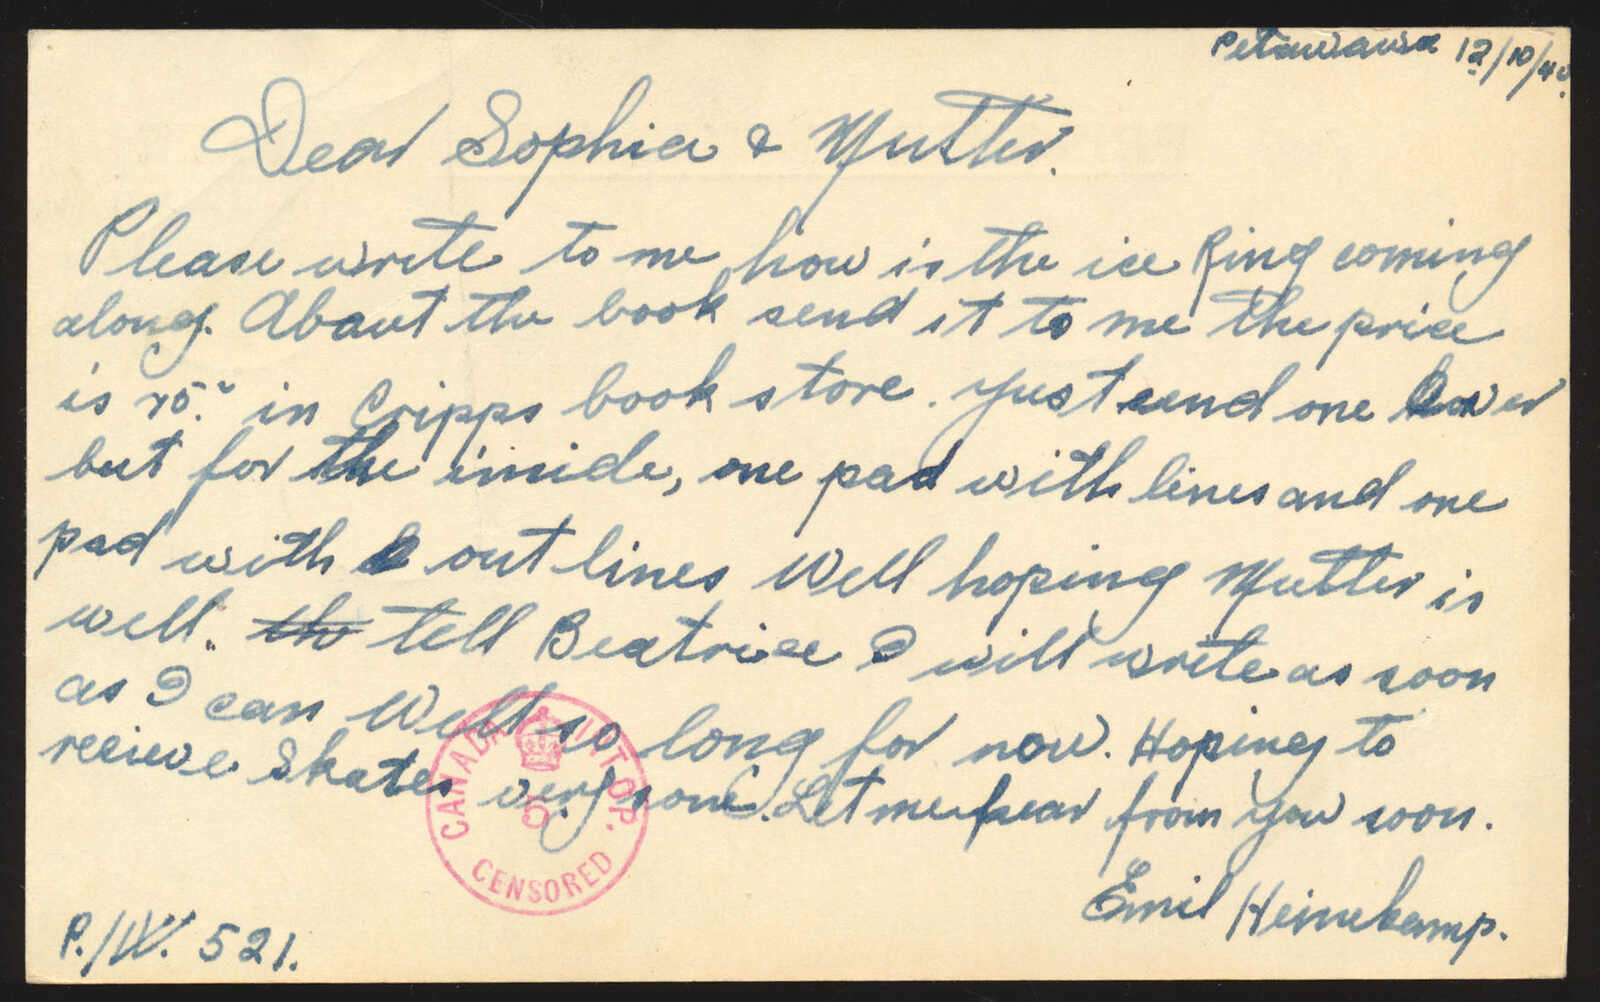 Petawawa 12/10/40.
Dear Sophia & Mutter.
Please write to me how is the ice Ring coming
along. About the book send it to me the price
is 75.c in Cripps book store. Just send one cover
but for the inside, one pad with lines and one
pad with out lines Well hoping Mutter is
well. the tell Beatrice I will write as soon
as I can Well so long for now. Hoping to
recieve Skates very sone. Let me hear from you soon.
Emil Heinekamp.
P./W. 521.
CANADA INT. OP.
5
CENSORED